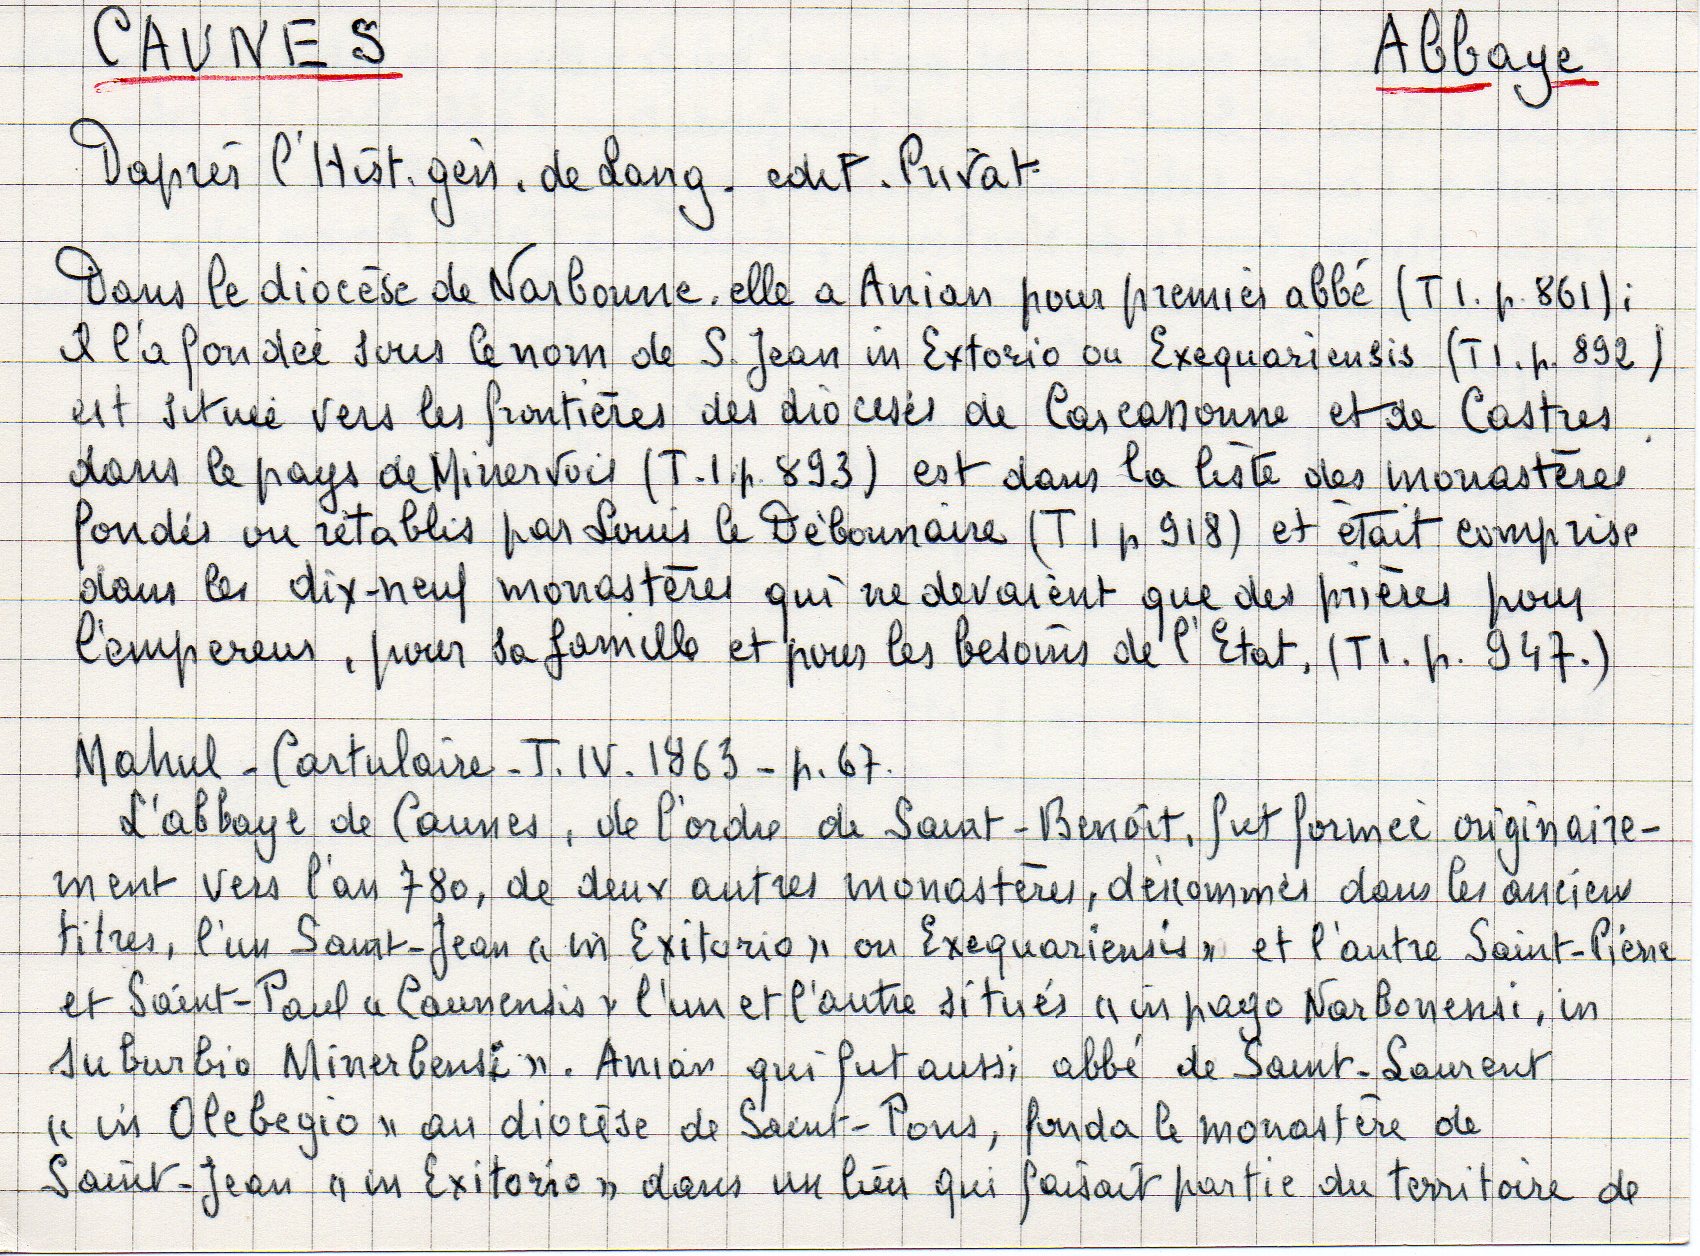 CAUNES Abbaye
D'après l'Hist. gén. de Lang. edit. Privat:
Dans le diocèse de Narbonne. elle a Anian pour premier abbé (T I. p. 861);
Il l'a fondée sous le nom de S. Jean in Extorio ou Exequariensis (T I. p. 892)
est située vers les frontières des diocésés de Carcassonne et de Castres.
dans le pays de Minervois (T. I. p. 893) est dans la liste des monastères
fondés ou rétablis par Louis le Débonnaire (T I p 918) et était comprise
dans les dix-neuf monastères qui ne devaient que des prières pour
l'empereur, pour sa famille et pour les besoins de l'Etat, (T I. p. 947.)
Mahul - Cartulaire - T. IV. 1863 - p. 67.
L'abbaye de Caunes, de l'ordre de Saint-Benoît, fut formée originaire-
ment vers l'an 780, de deux autres monastères, dénommés dans les anciens
titres, l'un Saint-Jean « in Exitorio » ou Exequariensis » et l'autre Saint-Pierre
et Saint-Paul « Caunensis » l'un et l'autre situés « in pago Narbonensi, in
suburbio Minerbensi ». Anian qui fut aussi abbé de Saint-Laurent
« in Olebegio » au diocèse de Saint-Pons, fonda le monastère de
Saint-Jean « in Exitorio » dans un lieu qui faisait partie du territoire de